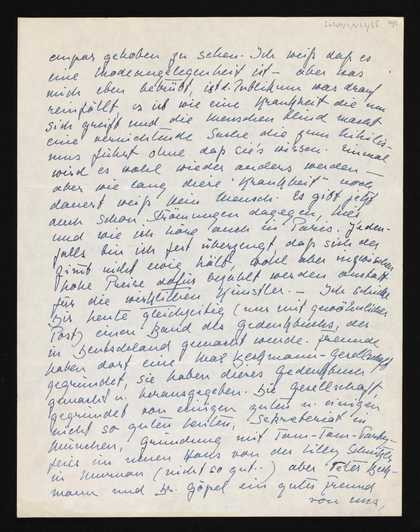 empor gehoben zu sehen. Ich weiß daß es
eine Modeangelegenheit ist – aber was
mich eben betrübt, ist d. Publikum was drauf
reinfällt es ist wie eine Krankheit die um
sich greift und die Menschen blind macht
eine vernichtende Seuche die zum Nihilis-
mus führt ohne daß sie's wissen. Einmal
wird es wohl wieder anders werden –
aber wie lang diese "Krankheit" noch
dauert weiß kein Mensch. Es gibt jetzt
auch schon Strömungen dagegen, hier
und wie ich höre auch in Paris. Jeden-
falls bin ich fest überzeugt, daß sich der
nicht ewig hält, wohl aber inzwischen
hohe Preise dafür bezahlt werden anstatt
für die wirklichen Künstler. – Ich schicke
Dir heute gleichzeitig (nur mit gewöhnlicher
Post) einen Band des Gedenkbuchs, der
in Deutschland gemacht wurde. Freunde
haben dort eine Max Beckmann-Gesellschaft
gegründet, sie haben dieses Gedenkbuch
gemacht u. herausgegeben. Die Gesellschaft,
gegründet von einigen guten u. einigen
nicht so guten Leuten, Sekretariat in
München, Gründung mit Tam-Tam-
feier im neuen Haus von der Lilly
in Murnau (nicht so gut..) aber Peter Beck-
mann und Dr. Göpel ein guter Freund
von uns,